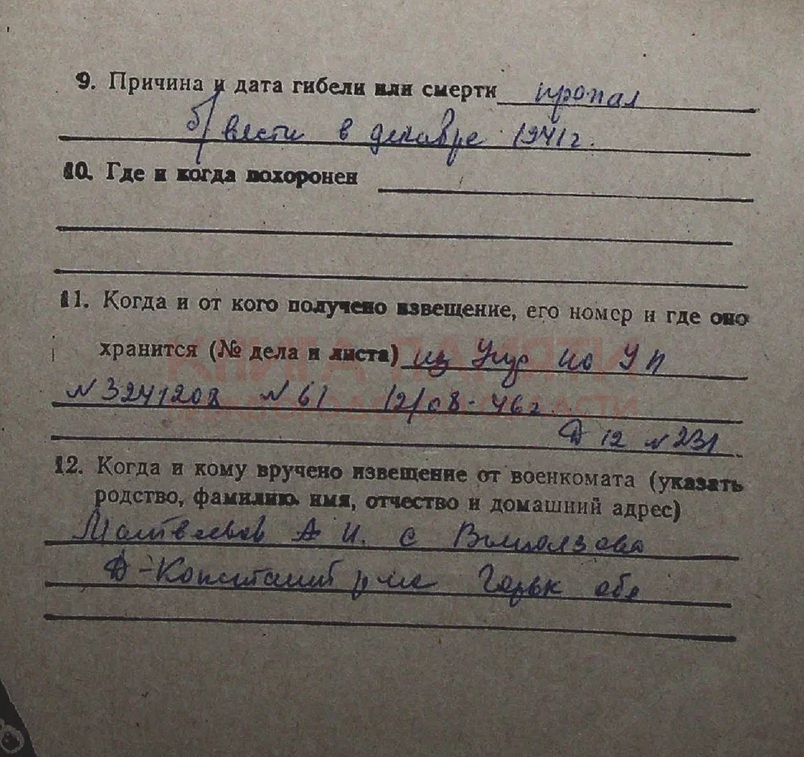 9. Причина и дата гибели или смерти пропал
б/вести в декабре 1941г.
10. Где и когда похоронен
11. Когда и от кого получено извещение, его номер и где оно
хранится (№ дела и листа) из Упр по УП
КНИГА ПАМЯТИ
N 3241208 N 61 12/08-46г.
Д 12 N 231
12. Когда и кому вручено извещение от военкомата (указать
родство, фамилию, имя, отчество и домашний адрес)
А И. с
Д-Константин Горьк обл